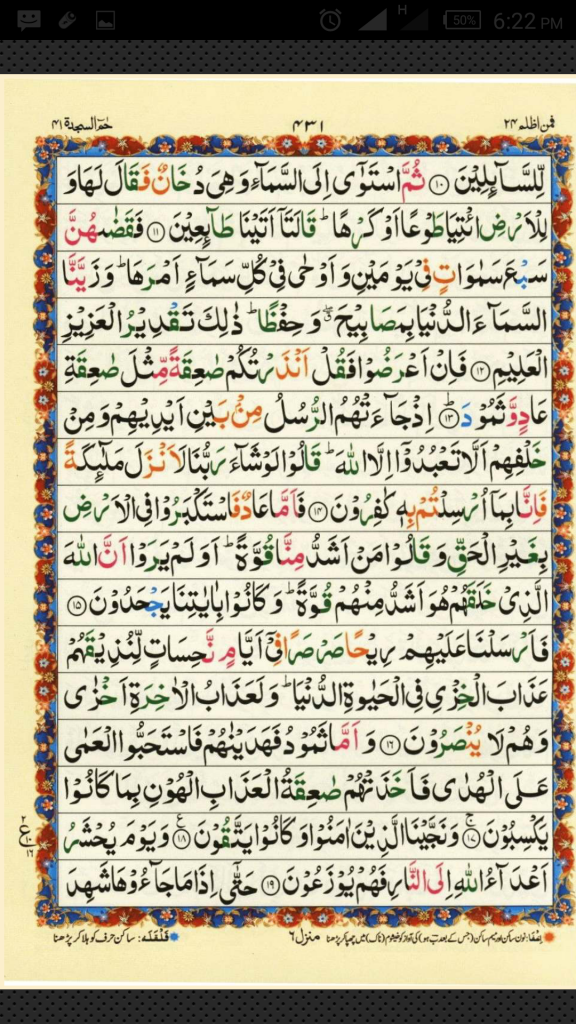 50% 6:22 PM
H
فمن اظلم ۲۴
۴۳۱
حٰمٓ السجدة ۴۱
لِّلسَّآئِلِيْنَ ۝۱۰ ثُمَّ اسْتَوٰٓى اِلَى السَّمَآءِ وَهِىَ دُخَانٌ فَقَالَ لَهَا وَ
لِلْاَرْضِ ائْتِيَا طَوْعًا اَوْ كَرْهًا ؕ قَالَتَاۤ اَتَيْنَا طَآئِعِيْنَ ۝۱۱ فَقَضٰٮهُنَّ
سَبْعَ سَمٰوَاتٍ فِىْ يَوْمَيْنِ وَاَوْحٰى فِىْ كُلِّ سَمَآءٍ اَمْرَهَا ؕ وَزَيَّنَّا
السَّمَآءَ الدُّنْيَا بِمَصَابِيْحَ ۖ وَحِفْظًا ؕ ذٰلِكَ تَقْدِيْرُ الْعَزِيْزِ
الْعَلِيْمِ ۝۱۲ فَاِنْ اَعْرَضُوْا فَقُلْ اَنْذَرْتُكُمْ صٰعِقَةً مِّثْلَ صٰعِقَةِ
عَادٍ وَّثَمُوْدَ ۝۱۳ؕ اِذْ جَآءَتْهُمُ الرُّسُلُ مِنْۢ بَيْنِ اَيْدِيْهِمْ وَمِنْ
خَلْفِهِمْ اَلَّا تَعْبُدُوْۤا اِلَّا اللّٰهَ ؕ قَالُوْا لَوْ شَآءَ رَبُّنَا لَاَنْزَلَ مَلٰٓئِكَةً
فَاِنَّا بِمَاۤ اُرْسِلْتُمْ بِهٖ كٰفِرُوْنَ ۝۱۴ فَاَمَّا عَادٌ فَاسْتَكْبَرُوْا فِى الْاَرْضِ
بِغَيْرِ الْحَقِّ وَقَالُوْا مَنْ اَشَدُّ مِنَّا قُوَّةً ؕ اَوَلَمْ يَرَوْا اَنَّ اللّٰهَ
الَّذِىْ خَلَقَهُمْ هُوَ اَشَدُّ مِنْهُمْ قُوَّةً ؕ وَكَانُوْا بِاٰيٰتِنَا يَجْحَدُوْنَ ۝۱۵
فَاَرْسَلْنَا عَلَيْهِمْ رِيْحًا صَرْصَرًا فِىْۤ اَيَّامٍ نَّحِسَاتٍ لِّنُذِيْقَهُمْ
عَذَابَ الْخِزْىِ فِى الْحَيٰوةِ الدُّنْيَا ؕ وَلَعَذَابُ الْاٰخِرَةِ اَخْزٰى
وَهُمْ لَا يُنْصَرُوْنَ ۝۱۶ وَاَمَّا ثَمُوْدُ فَهَدَيْنٰهُمْ فَاسْتَحَبُّوا الْعَمٰى
عَلَى الْهُدٰى فَاَخَذَتْهُمْ صٰعِقَةُ الْعَذَابِ الْهُوْنِ بِمَا كَانُوْا
يَكْسِبُوْنَ ۝۱۷ۚ وَنَجَّيْنَا الَّذِيْنَ اٰمَنُوْا وَكَانُوْا يَتَّقُوْنَ ۝۱۸ؑ وَيَوْمَ يُحْشَرُ
اَعْدَآءُ اللّٰهِ اِلَى النَّارِ فَهُمْ يُوْزَعُوْنَ ۝۱۹ حَتّٰٓى اِذَا مَا جَآءُوْهَا شَهِدَ
۲ ع ۱۰ ۱۶
منزل ۶
قلقلہ: ساکن حرف کو ہلا کر پڑھنا